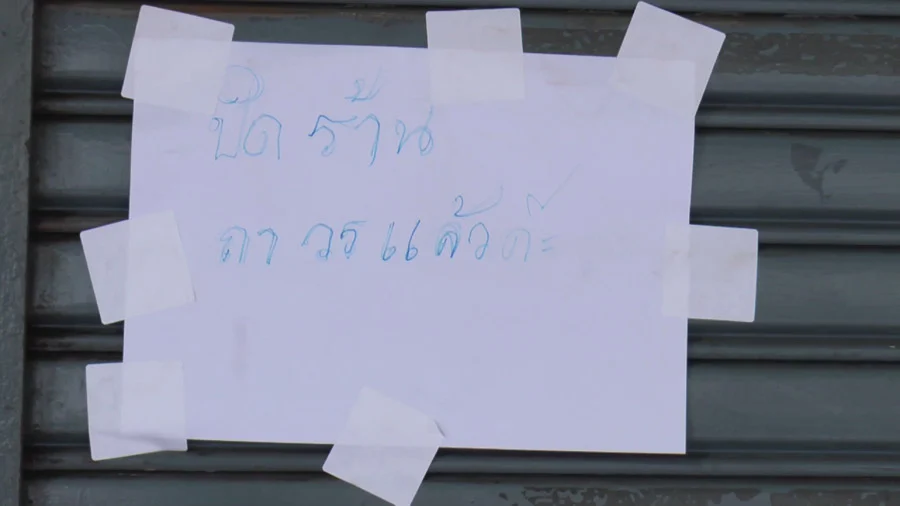 ปิดร้าน
ถาวรแล้วค๊ะ